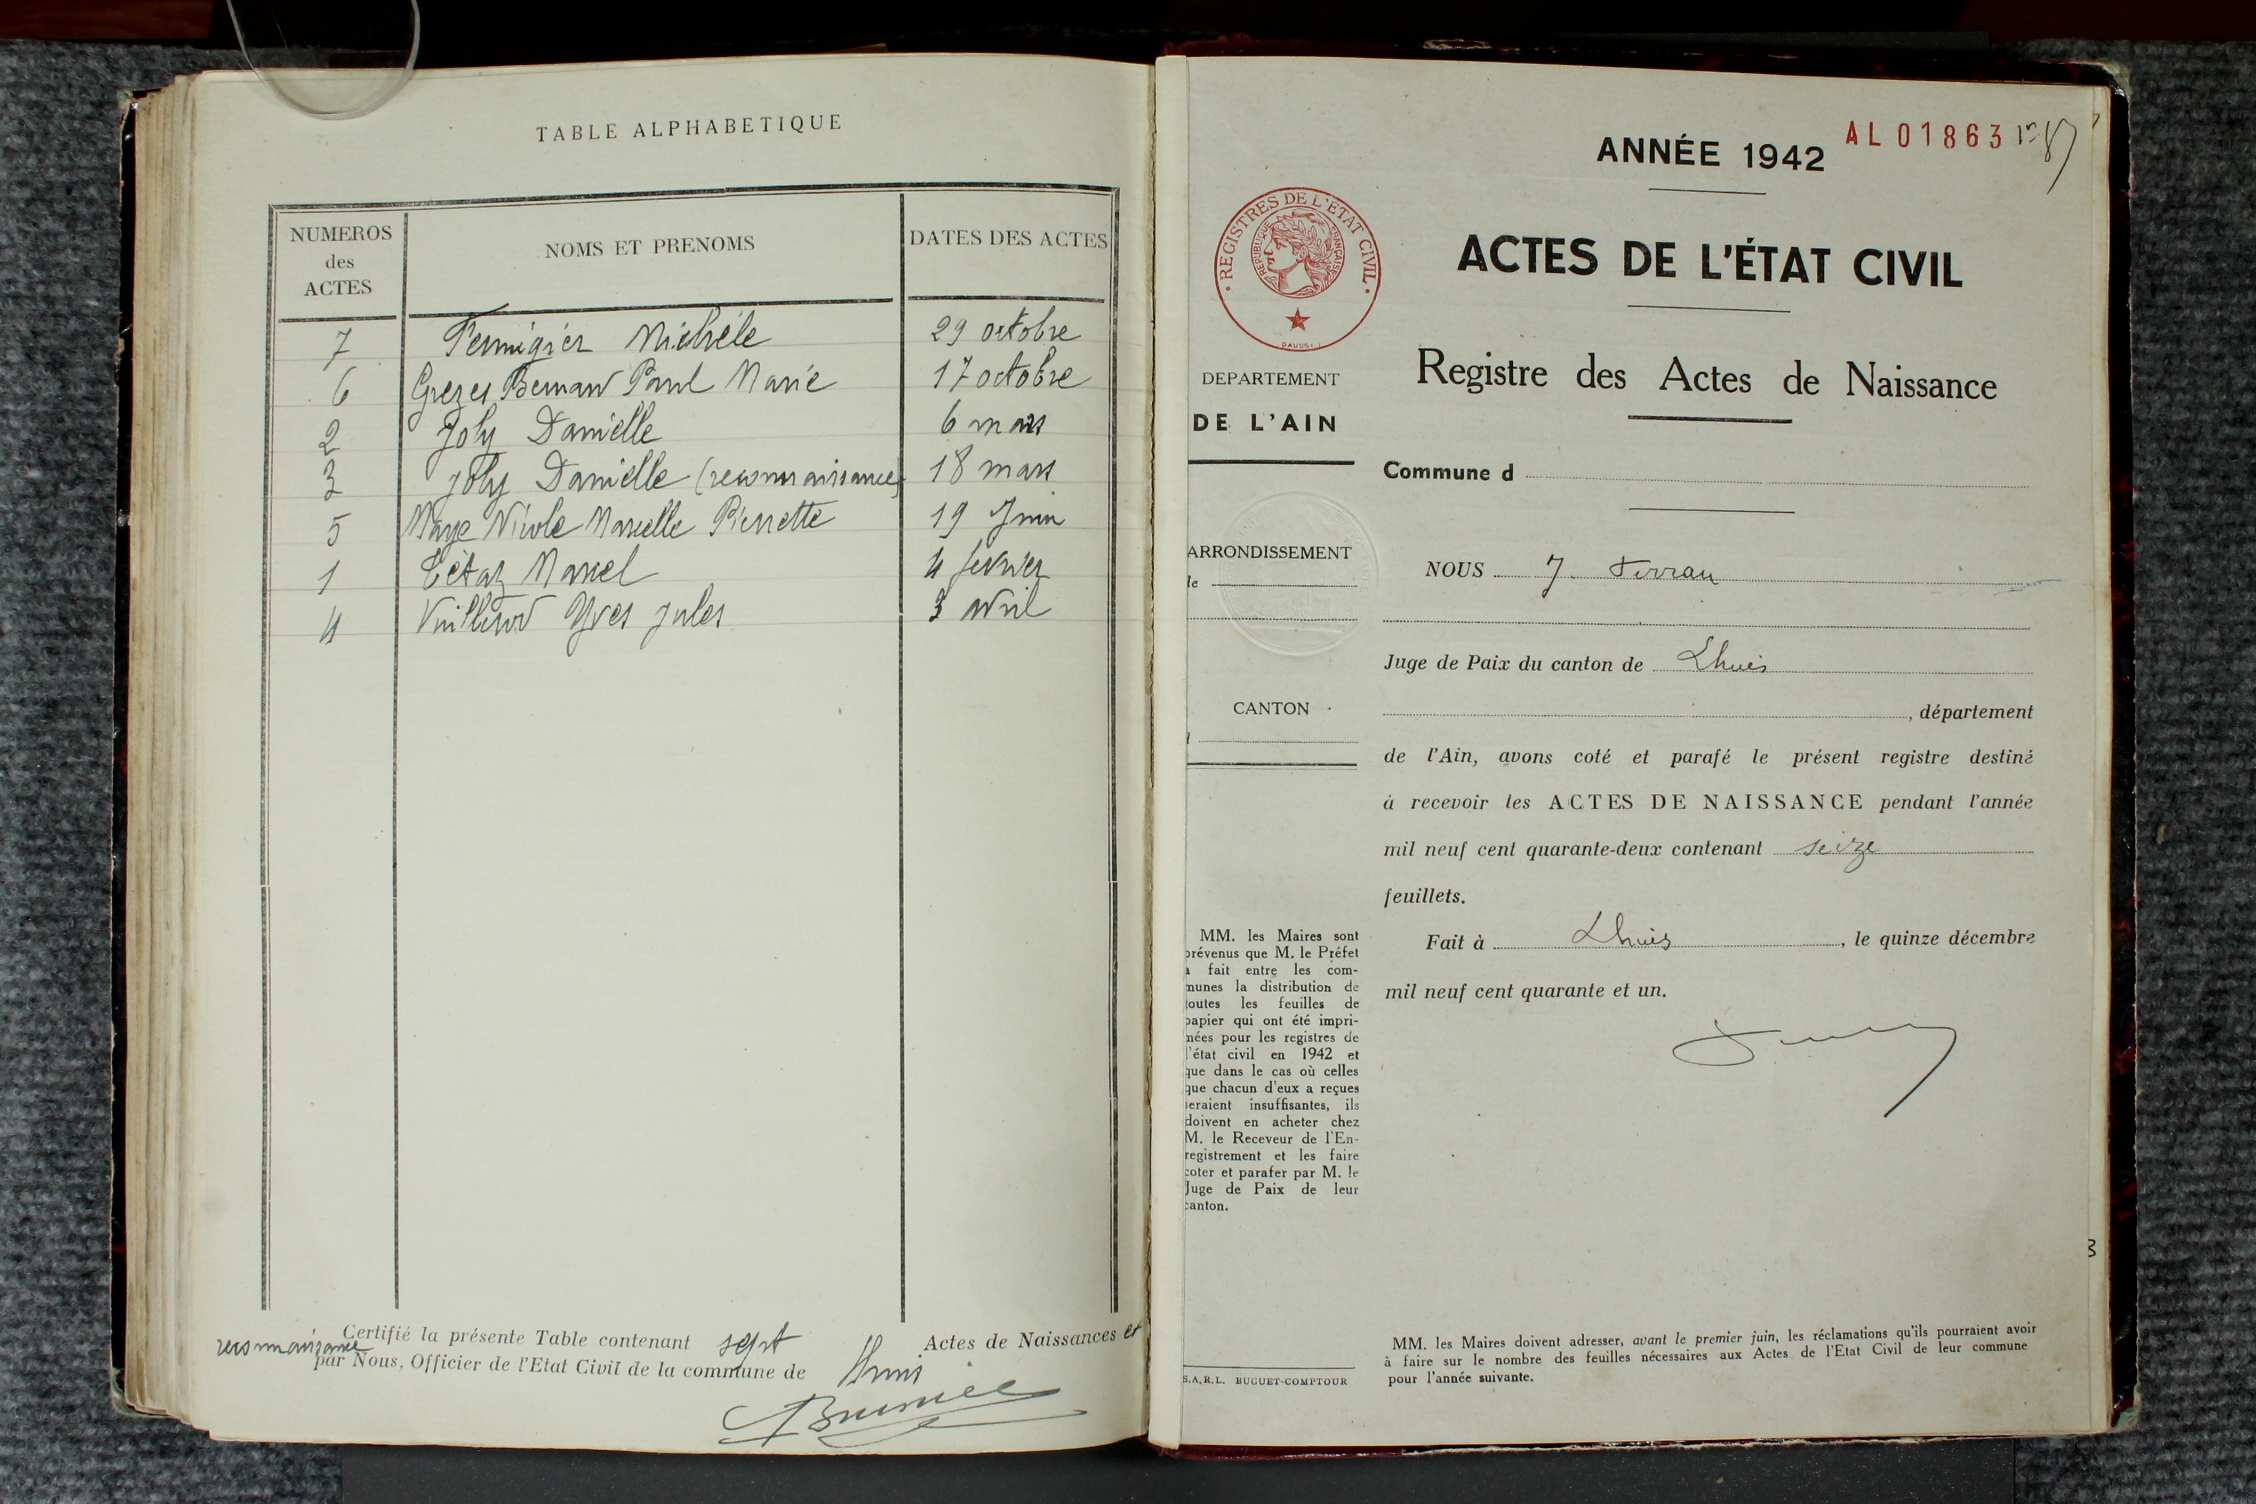 TABLE ALPHABETIQUE
NUMEROS
des
ACTES
NOMS ET PRENOMS
DATES DES ACTES
7 Michèle 29 octobre
6 Grezes Bernard Paul Marie 17 octobre
2 Joly Danielle 6 mars
3 Joly Danielle (reconnaissance) 18 mars
5 Maye Nicole Marcelle Pierrette 19 Juin
1 Tétaz Marcel 4 fevrier
4 Yves Jules 3 avril
Certifié la présente Table contenant sept Actes de Naissances et
reconnaissance
par Nous, Officier de l'Etat Civil de la commune de Lhuis
ANNÉE 1942
AL 01863
REGISTRES DE L'ETAT CIVIL
REPUBLIQUE FRANÇAISE
ACTES DE L'ÉTAT CIVIL
Registre des Actes de Naissance
DEPARTEMENT
DE L'AIN
Commune d
ARRONDISSEMENT
NOUS J.
Juge de Paix du canton de Lhuis
CANTON
, département
de l'Ain, avons coté et parafé le présent registre destiné
à recevoir les ACTES DE NAISSANCE pendant l'année
mil neuf cent quarante-deux contenant seize
feuillets.
Fait à Lhuis, le quinze décembre
mil neuf cent quarante et un.
MM. les Maires sont
prévenus que M. le Préfet
a fait entre les com-
munes la distribution de
toutes les feuilles de
papier qui ont été impri-
mées pour les registres de
l'état civil en 1942 et
que dans le cas où celles
que chacun d'eux a reçues
seraient insuffisantes, ils
doivent en acheter chez
M. le Receveur de l'En-
registrement et les faire
coter et parafer par M. le
Juge de Paix de leur
canton.
S.A.R.L. BUGUET-COMPTOUR
MM. les Maires doivent adresser, avant le premier juin, les réclamations qu'ils pourraient avoir
à faire sur le nombre des feuilles nécessaires aux Actes de l'Etat Civil de leur commune
pour l'année suivante.